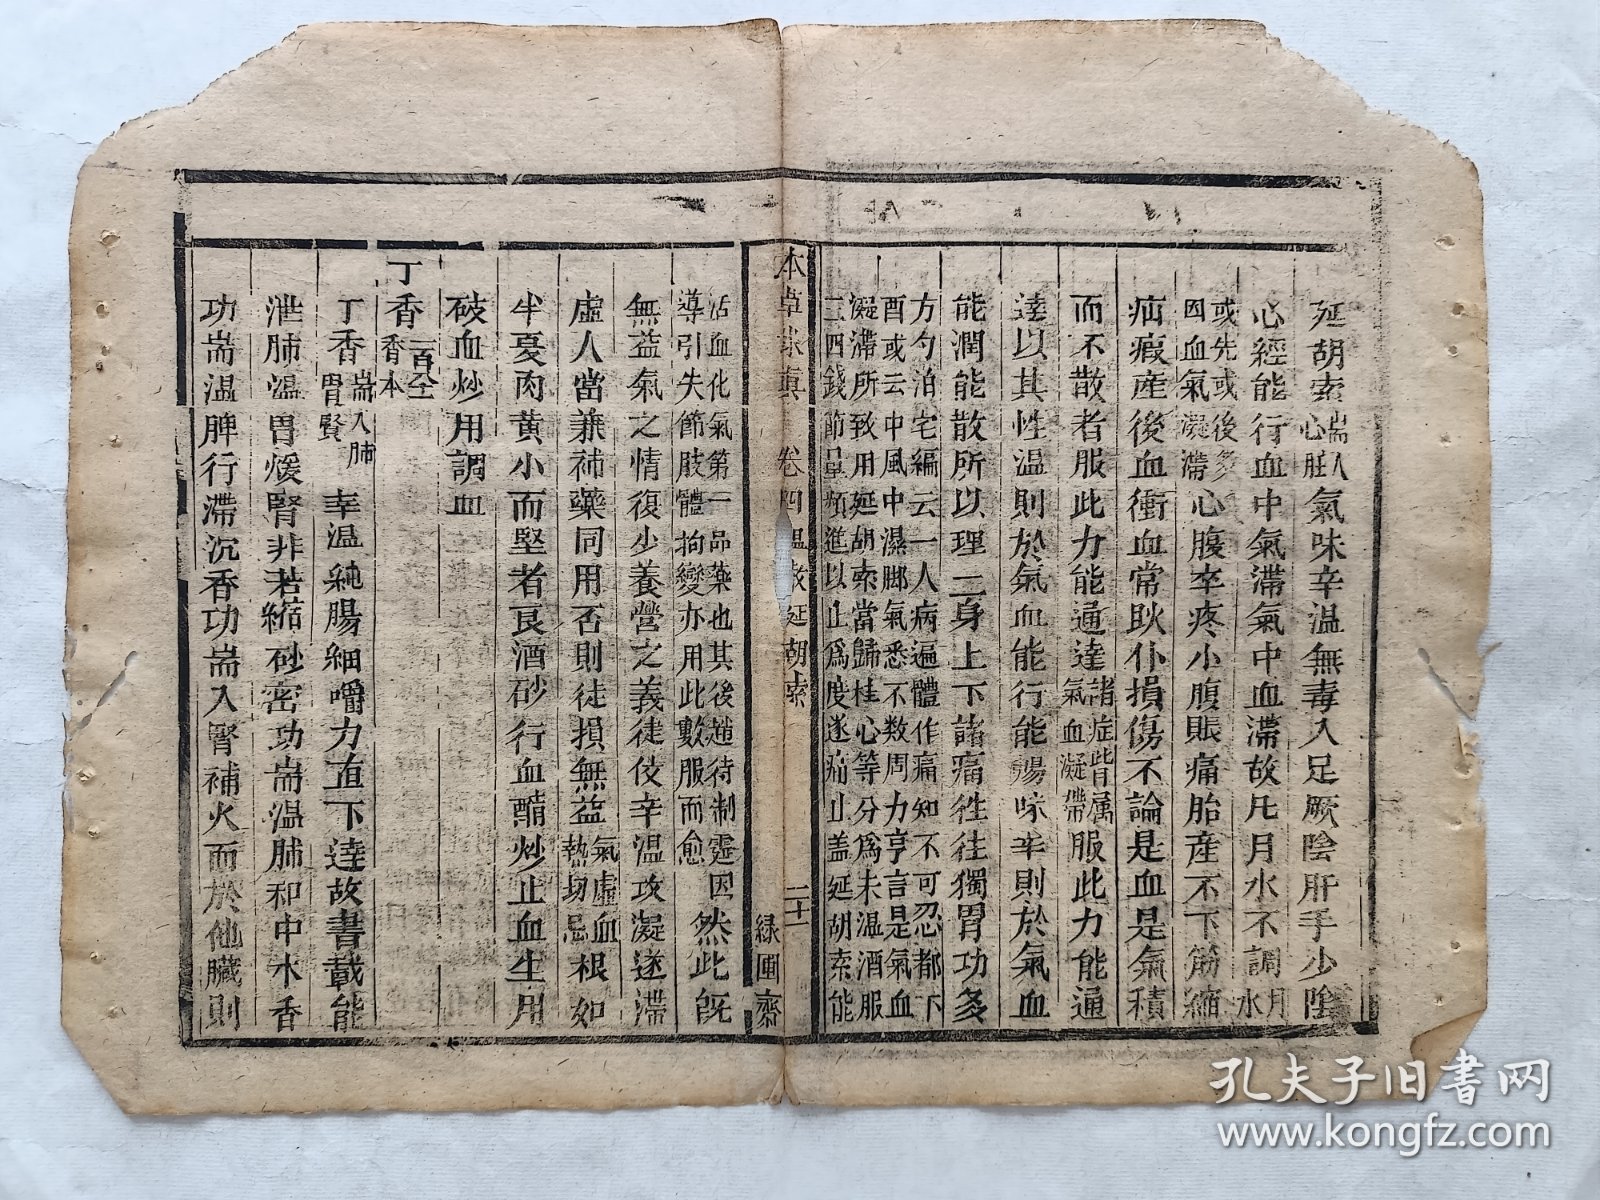 延胡索耑入心胚氣味辛温無毒入足厥陰肝手少陰
心經能行血中氣滯氣中血滯故凡月水不調月水
或先或後多因血氣凝滯心腹卒疼小腹賬痛胎產不下筋縮
疝瘕產後血衝血常眈仆損傷不論是血是氣積
而不散者服此力能通達諸症皆属氣血凝滯服此力能通
達以其性温則於氣血能行能暢味辛則於氣血
能潤能散所以理一身上下諸痛徃往獨胃功多
方勺泊宅編云一人病遍體作痛知不可忍都下
酉或云中風中濕脚氣悉不效周力亨言是氣血
凝滯所致用延胡索當歸桂心等分爲末温酒服
三四錢節量頻進以止爲度遂痛止盖延胡索能
本草求眞 卷四 温散 延胡索 二十一 緑圃齋
活血化氣第一品藥也其後趙待制霆因
導引失節肢體拘變亦用此數服而愈然此旣
無益氣之情復少養營之義徒仗辛温攻凝逐滯
虛人當兼補藥同用否則徒損無益氣虛血熱切忌根如
半夏肉黄小而堅者良酒砂行血醋炒止血生用
破血炒用調血
丁香香本
丁香耑入肺胃腎辛温純腸細嚼力直下逹故書載能
泄肺温胃煖腎非若縮砂密功耑温肺和中木香
功耑温脾行滯沉香功耑入腎補火而於他臟則
孔夫子旧書网
www.kongfz.com